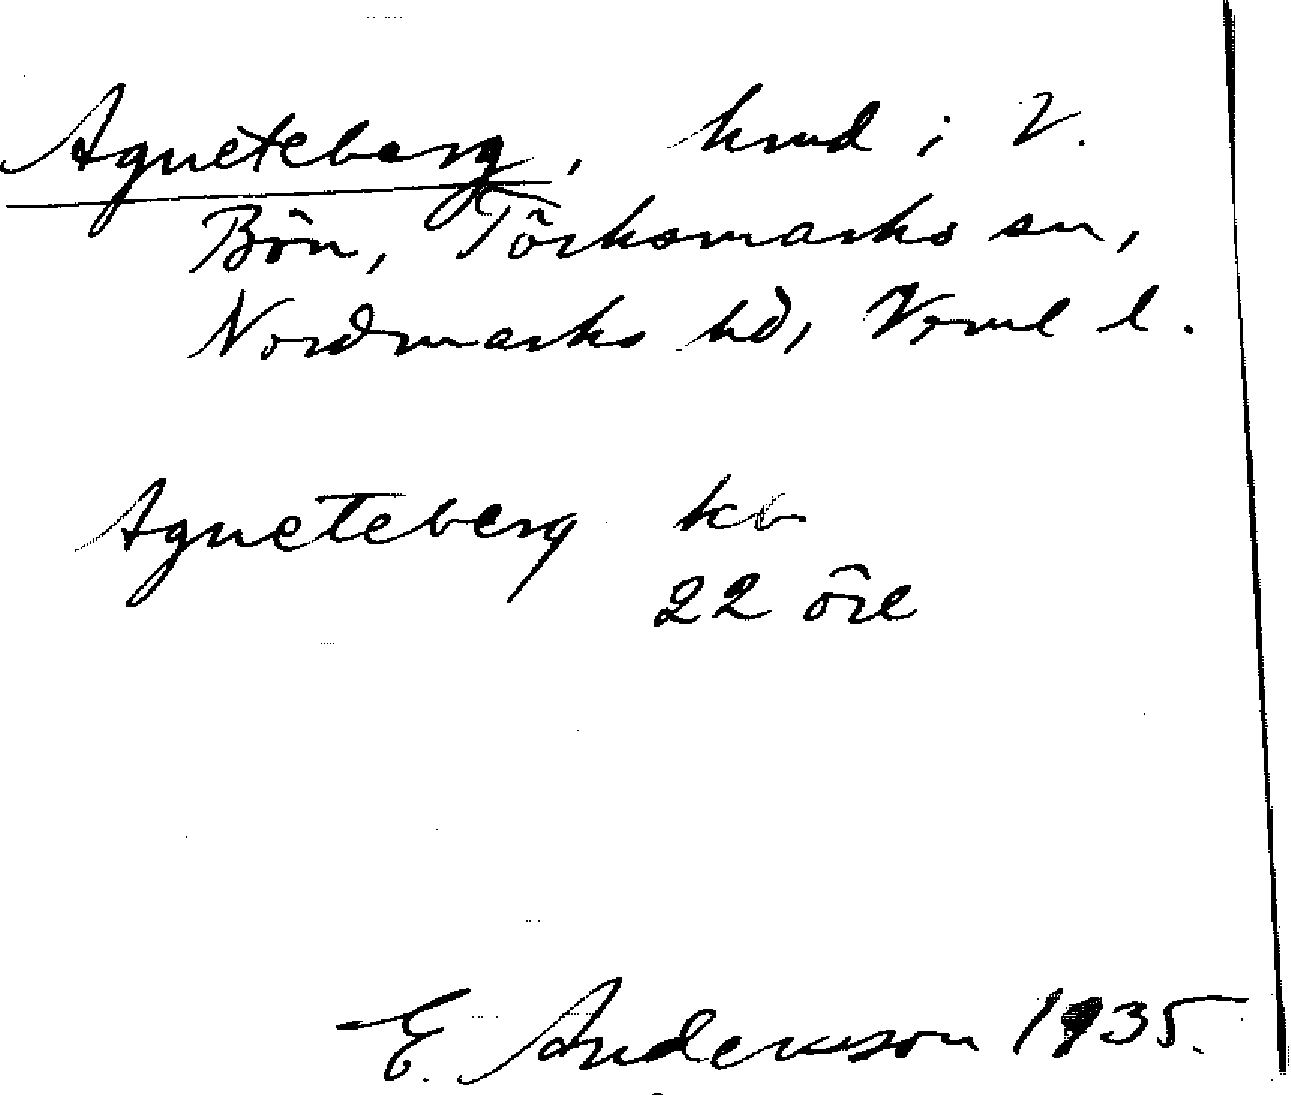 Agneteberg, hmd i V.
Bön, Töcksmarks sn,
Nordmarks hd, Verml l.
Agneteberg kb
22 öre
E. Andersson 1935.